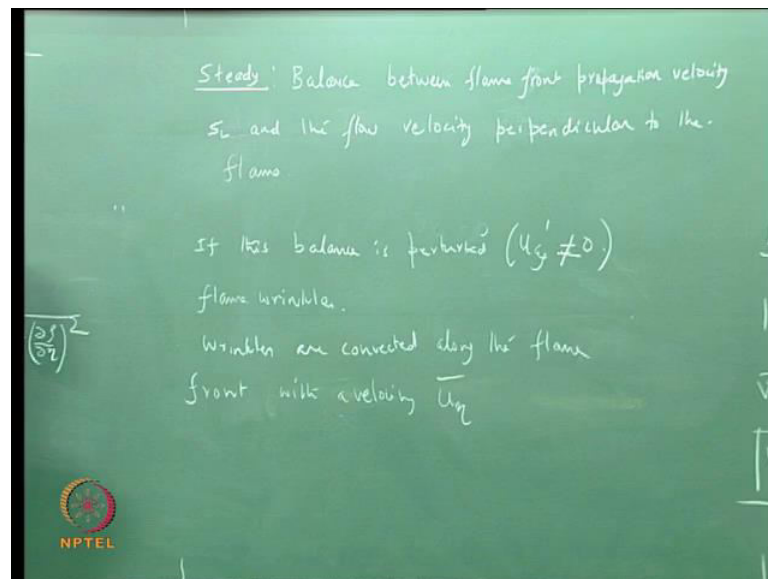 Steady : Balance between flame front propagation velocity
S_L and the flow velocity perpendicular to the
flame
If this balance is perturbed (u_ξ' ≠ 0)
flame wrinkles.
Wrinkles are convected along the flame
front with a velocity ū_η
(∂ξ/∂η)²
NPTEL